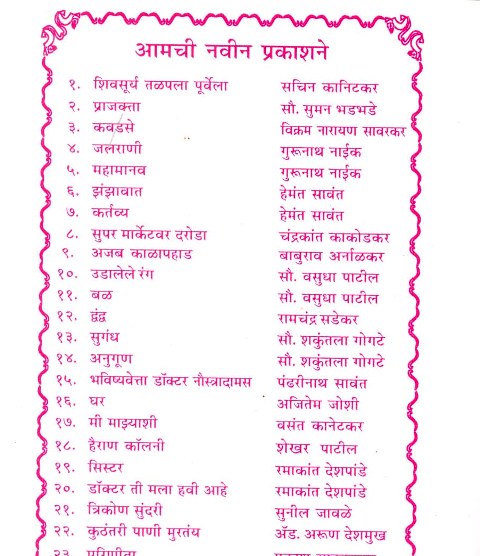 आमची नवीन प्रकाशने
१. शिवसूर्य तळपला पूर्वेला सचिन कानिटकर
२. प्राजक्ता सौ. सुमन भडभडे
३. कवडसे विक्रम नारायण सावरकर
४. जलराणी गुरूनाथ नाईक
५. महामानव गुरूनाथ नाईक
६. झंझावात हेमंत सावंत
७. कर्तव्य हेमंत सावंत
८. सुपर मार्केटवर दरोडा चंद्रकांत काकोडकर
९. अजब काळापहाड बाबुराव अर्नाळकर
१०. उडालेले रंग सौ. वसुधा पाटील
११. बळ सौ. वसुधा पाटील
१२. द्वंद्व रामचंद्र सडेकर
१३. सुगंध सौ. शकुंतला गोगटे
१४. अनुगूण सौ. शकुंतला गोगटे
१५. भविष्यवेत्ता डॉक्टर नौस्त्रादामस पंढरीनाथ सावंत
१६. घर अजितेम जोशी
१७. मी माझ्याशी वसंत कानेटकर
१८. हैराण कॉलनी शेखर पाटील
१९. सिस्टर रमाकांत देशपांडे
२०. डॉक्टर ती मला हवी आहे रमाकांत देशपांडे
२१. त्रिकोण सुंदरी सुनील जावळे
२२. कुठंतरी पाणी मुरतंय ॲड. अरूण देशमुख